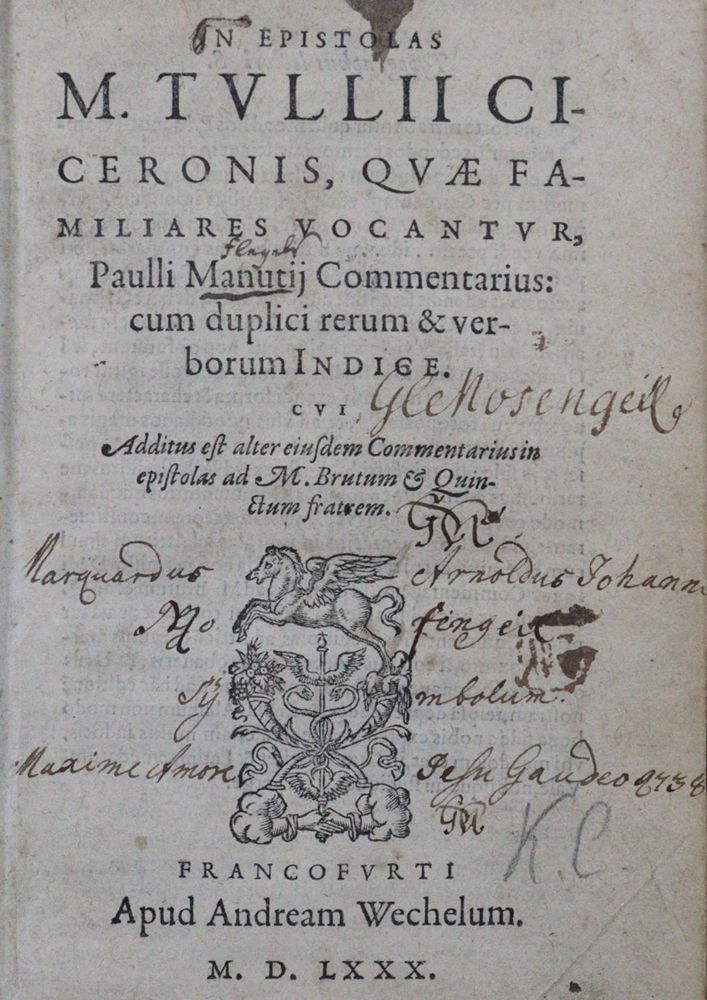 IN EPISTOLAS
M. TVLLII CI-
CERONIS, QVÆ FA-
MILIARES VOCANTVR,
Paulli Manutij Commentarius:
cum duplici rerum & ver-
borum INDICE.
CVI
Additus est alter eiusdem Commentarius in
epistolas ad M. Brutum & Quin-
ctum fratrem.
Marquardus Arnoldus Johann
Mosengeil
Symbolum.
Maxime Amore Jesu Gaudeo 1738
GM
K.C
FRANCOFVRTI
Apud Andream Wechelum.
M. D. LXXX.